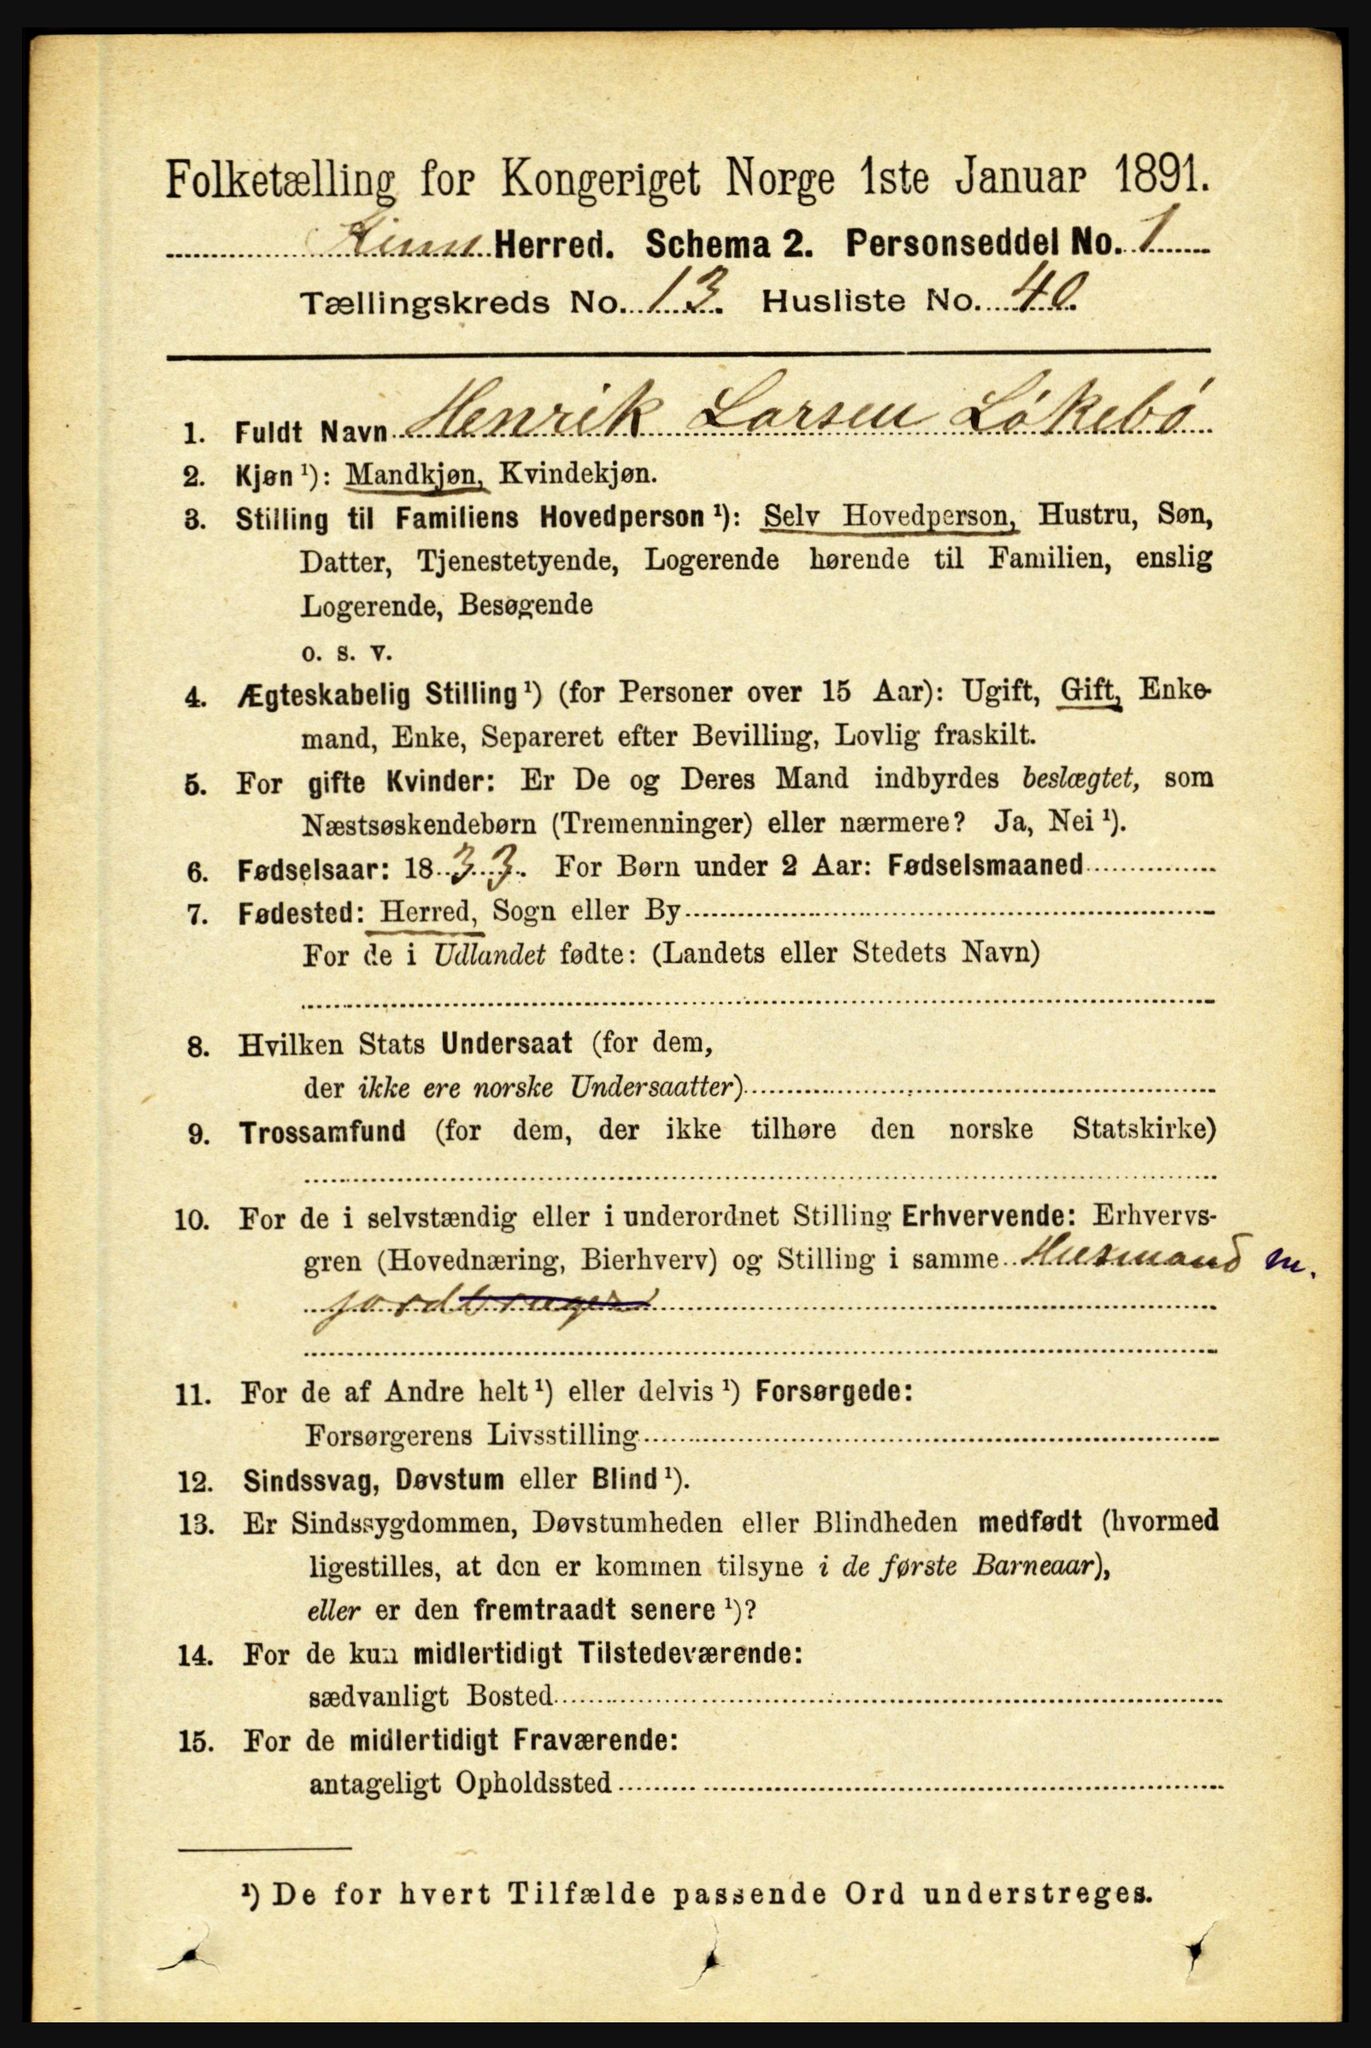 Folketælling for Kongeriget Norge 1ste Januar 1891.
Kinn Herred. Schema 2. Personseddel No. 1
Tællingskreds No. 13. Husliste No. 40.
1. Fuldt Navn Henrik Larsen Løkebø
2. Kjøn ¹): Mandkjøn, Kvindekjøn.
3. Stilling til Familiens Hovedperson ¹): Selv Hovedperson, Hustru, Søn,
Datter, Tjenestetyende, Logerende hørende til Familien, enslig
Logerende, Besøgende
o. s. v.
4. Ægteskabelig Stilling ¹) (for Personer over 15 Aar): Ugift, Gift, Enke-
mand, Enke, Separeret efter Bevilling, Lovlig fraskilt.
5. For gifte Kvinder: Er De og Deres Mand indbyrdes beslægtet, som
Næstsøskendebørn (Tremenninger) eller nærmere? Ja, Nei ¹).
6. Fødselsaar: 1833. For Børn under 2 Aar: Fødselsmaaned
7. Fødested: Herred, Sogn eller By
For de i Udlandet fødte: (Landets eller Stedets Navn)
8. Hvilken Stats Undersaat (for dem,
der ikke ere norske Undersaatter)
9. Trossamfund (for dem, der ikke tilhøre den norske Statskirke)
10. For de i selvstændig eller i underordnet Stilling Erhvervende: Erhvervs-
gren (Hovednæring, Bierhverv) og Stilling i samme Husmand m.
jordbruger
11. For de af Andre helt ¹) eller delvis ¹) Forsørgede:
Forsørgerens Livsstilling
12. Sindssvag, Døvstum eller Blind ¹).
13. Er Sindssygdommen, Døvstumheden eller Blindheden medfødt (hvormed
ligestilles, at den er kommen tilsyne i de første Barneaar),
eller er den fremtraadt senere ¹)?
14. For de kun midlertidigt Tilstedeværende:
sædvanligt Bosted
15. For de midlertidigt Fraværende:
antageligt Opholdssted
¹) De for hvert Tilfælde passende Ord understreges.